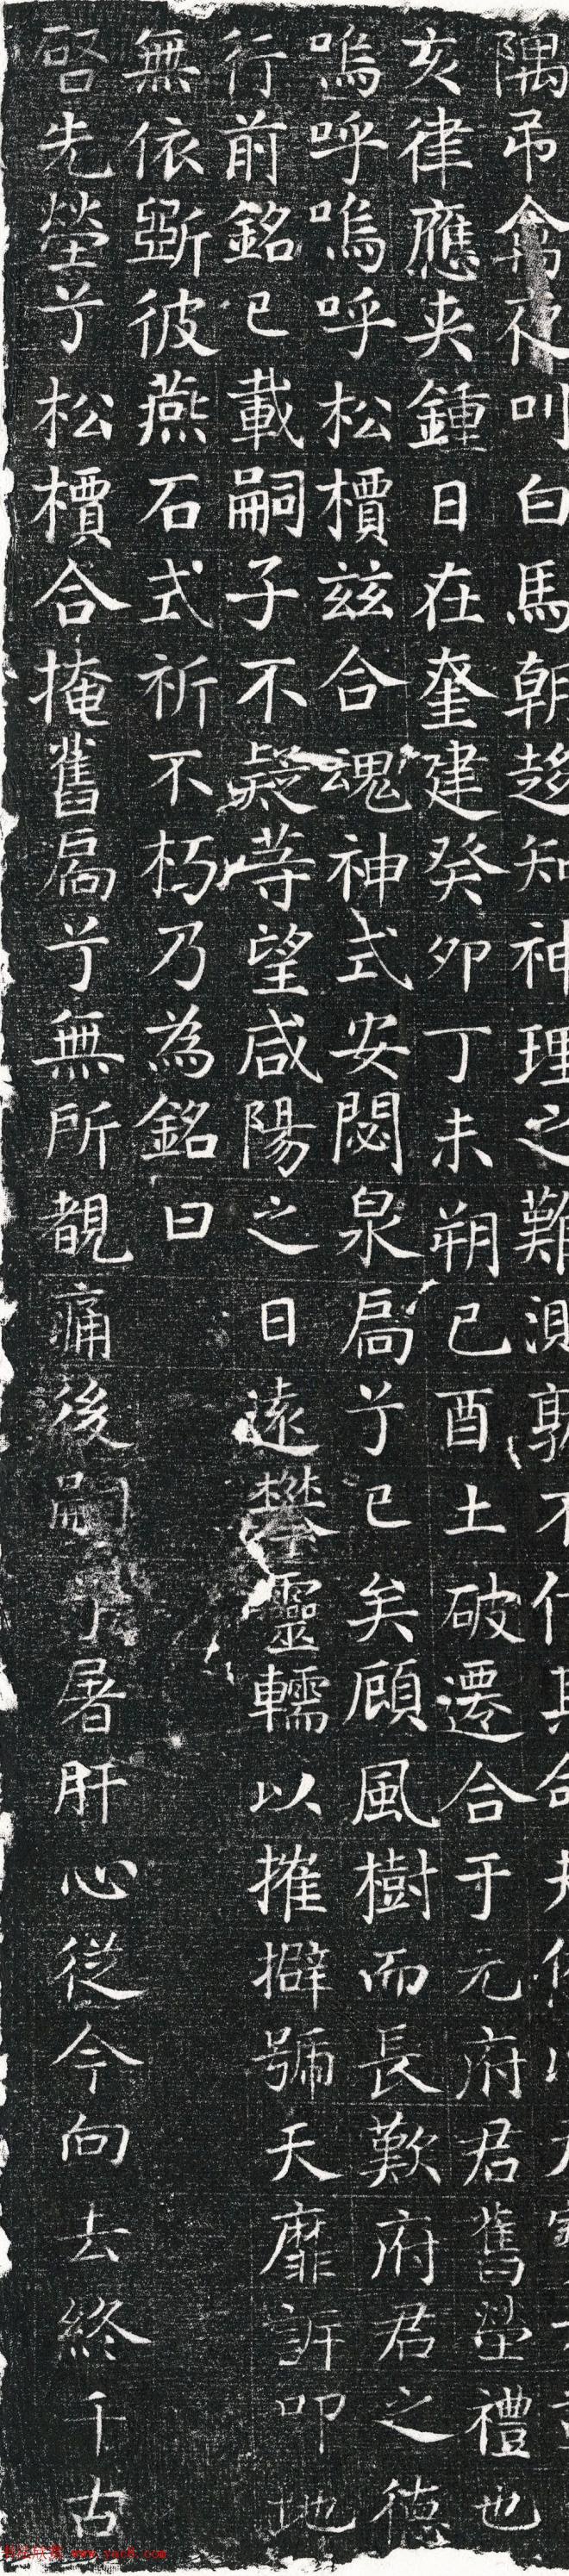 隅吊禽夜叫白馬朝趍知神理之難測
亥律應夾鍾日在奎建癸卯丁未朔己酉土破遷合于元府君舊塋禮也
嗚呼嗚呼松檟茲合魂神式安閟泉扃兮已矣顧風樹而長歎府君之德
行前銘已載嗣子不疑等望咸陽之日遠攀靈轜以摧擗號天靡訴叩地
無依斲彼燕石式祈不朽乃為銘曰
啓先塋兮松檟合掩舊扃兮無所覩痛後嗣兮屠肝心從今向去終千古